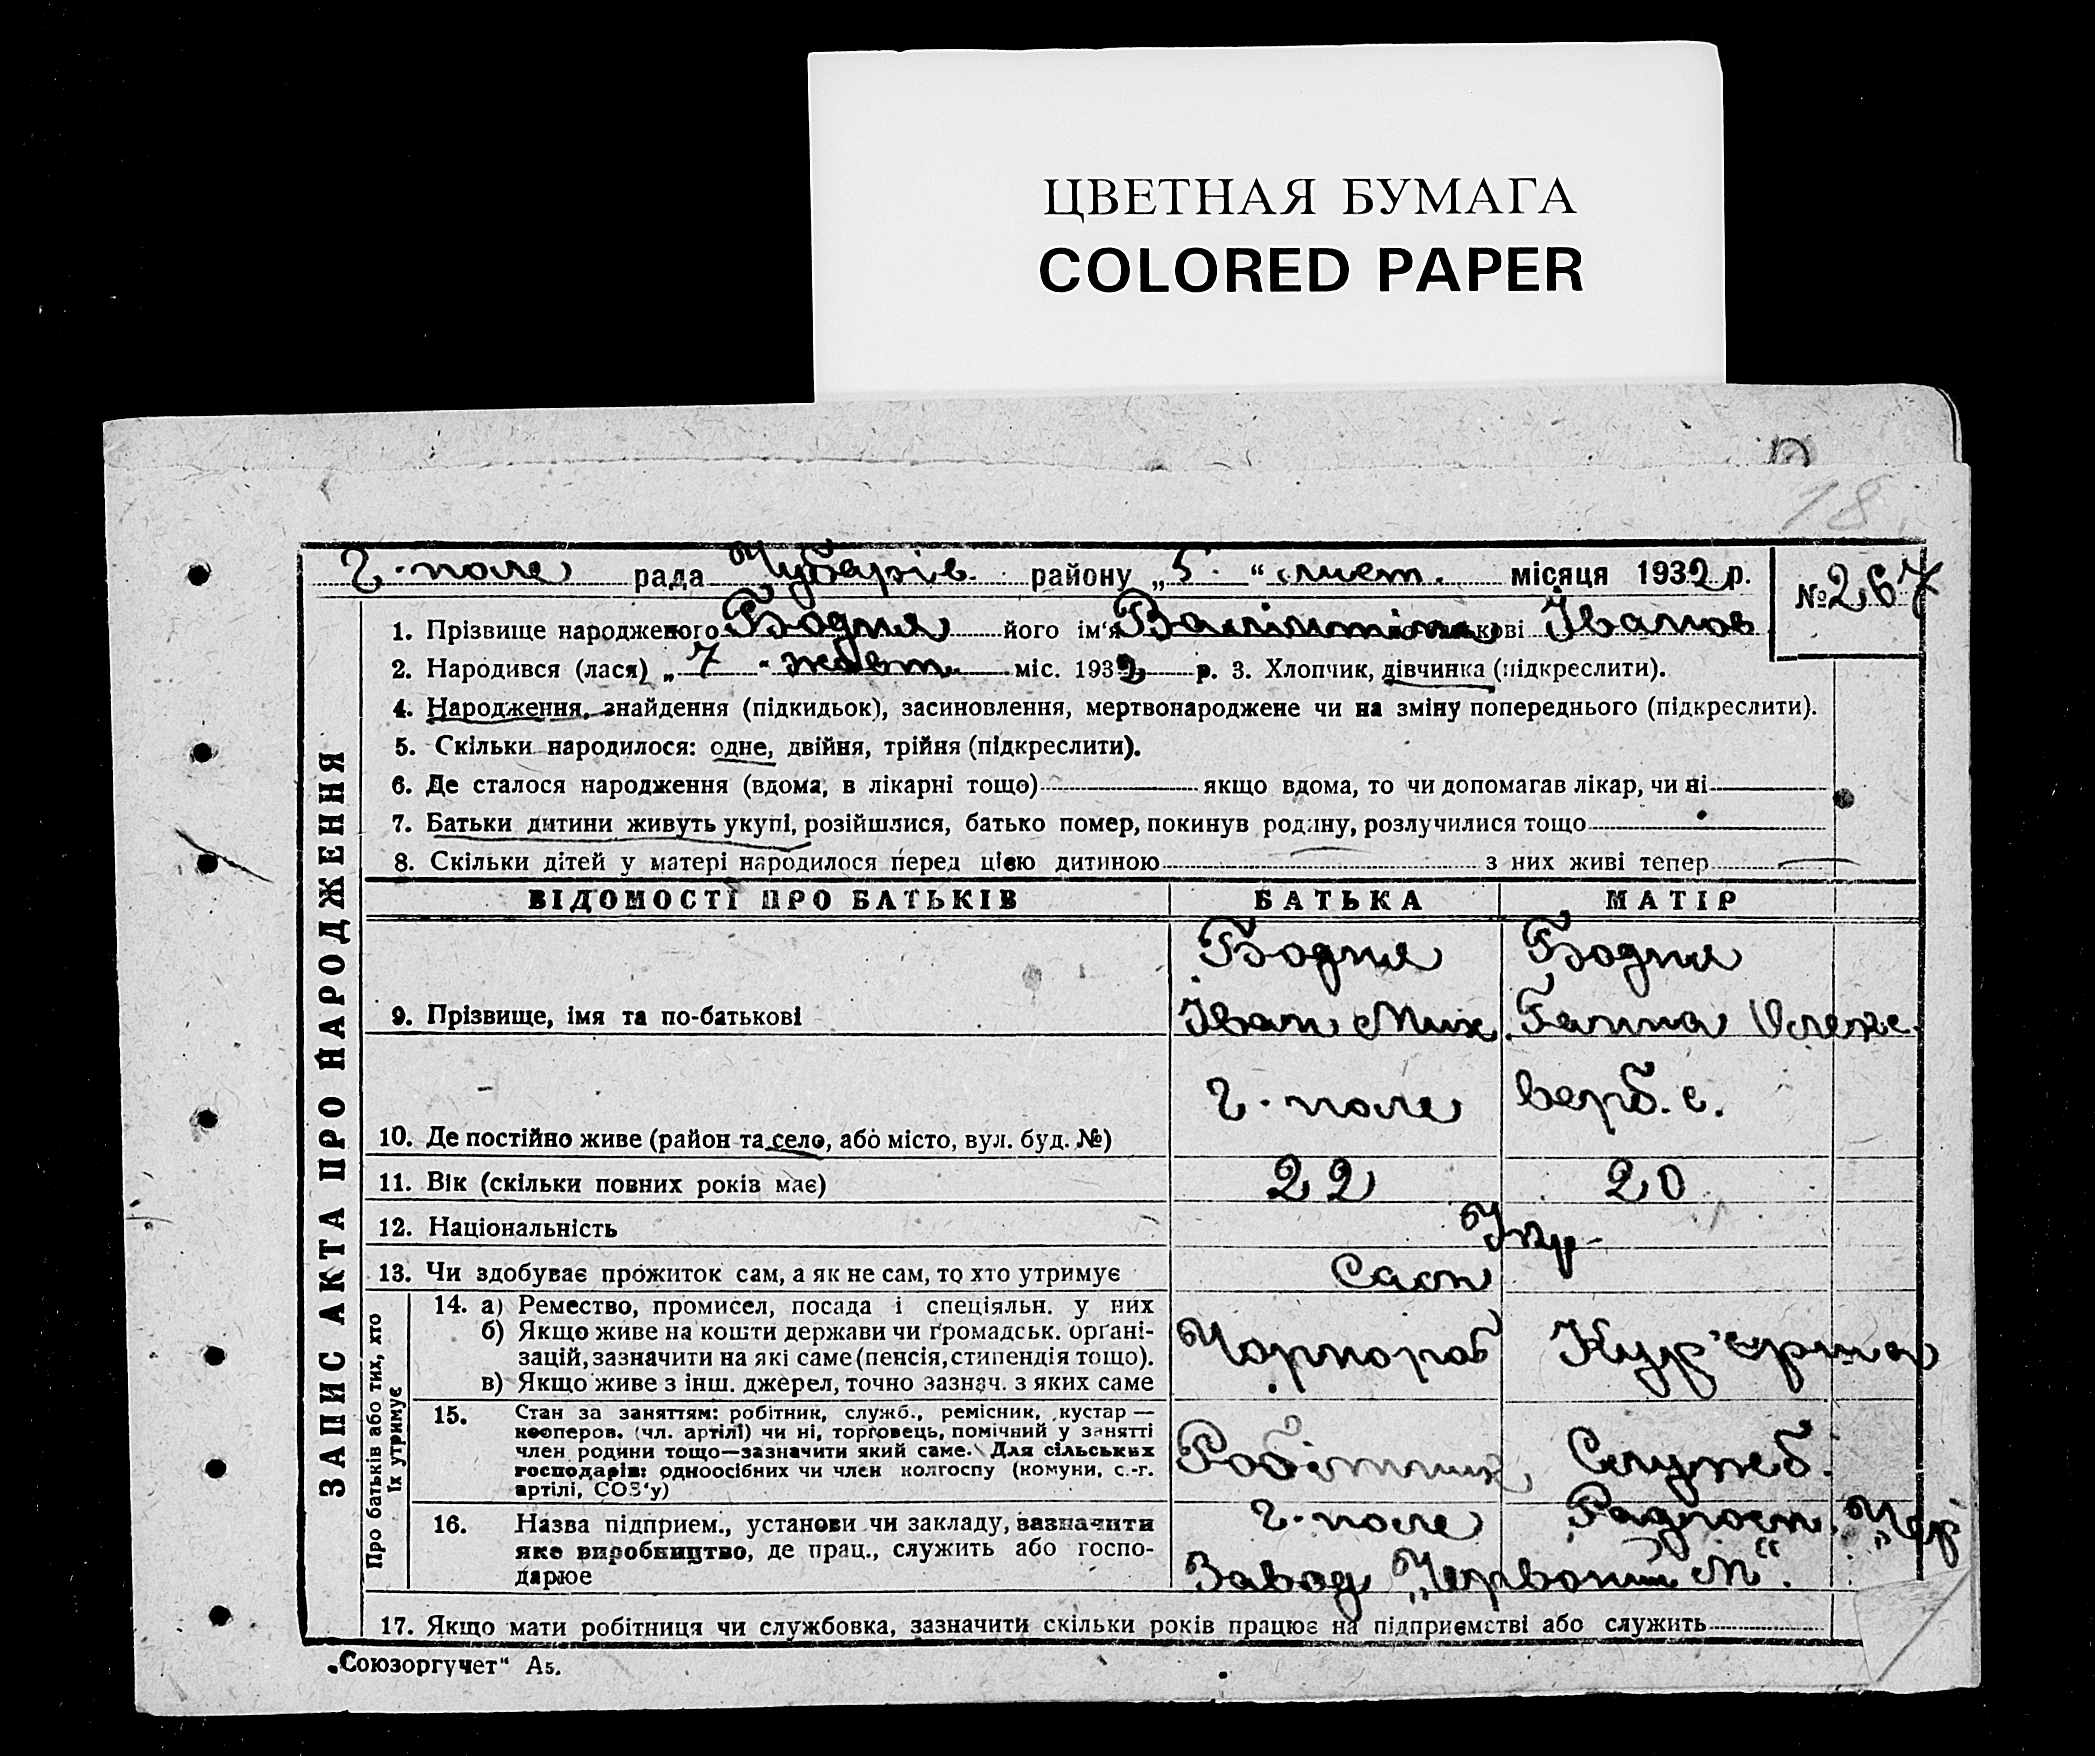 ЦВЕТНАЯ БУМАГА
COLORED PAPER
18.
Г-поле рада Чубарів. району „5.“ лист. місяця 1932 р.
№ 267
1. Прізвище народженого Бодня його ім'я Валентина по батькові Іванов
2. Народився (лася) „7“ жовт. міс. 1932 р. 3. Хлопчик, дівчинка (підкреслити).
4. Народження, знайдення (підкидьок), засиновлення, мертвонароджене чи на зміну попереднього (підкреслити).
5. Скільки народилося: одне, двійня, трійня (підкреслити).
6. Де сталося народження (вдома, в лікарні тощо) якщо вдома, то чи допомагав лікар, чи ні
7. Батьки дитини живуть укупі, розійшлися, батько помер, покинув родину, розлучилися тощо
8. Скільки дітей у матері народилося перед цією дитиною з них живі тепер
ЗАПИС АКТА ПРО НАРОДЖЕННЯ
ВІДОМОСТІ ПРО БАТЬКІВ БАТЬКА МАТІР
Бодня Бодня
9. Прізвище, імя та по-батькові Іван Мих. Ганна Олекс.
Г-поле Верб. с.
10. Де постійно живе (район та село, або місто, вул. буд. №)
11. Вік (скільки повних років має) 22 20
12. Національність Укр-
13. Чи здобуває прожиток сам, а як не сам, то хто утримує Сам
Про батьків або тих, хто
їх утримує
14. а) Ремество, промисел, посада і спеціяльн. у них
б) Якщо живе на кошти держави чи громадськ. органі-
зацій, зазначити на які саме (пенсія, стипендія тощо).
в) Якщо живе з інш. джерел, точно зазнач. з яких саме
Чорнороб Кур'єрша
15. Стан за заняттям: робітник, служб., ремісник, кустар —
кооперов. (чл. артілі) чи ні, торговець, помічний у занятті
член родини тощо—зазначити який саме. Для сільських
господарів: одноосібних чи член колгоспу (комуни, с.-г.
артілі, СОЗ'у)
Робітник Служб.
16. Назва підприєм., установи чи закладу, зазначити
яке виробництво, де прац., служить або госпо-
дарює
Г-поле Радгосп „Чер
Завод „Червоний М“.
17. Якщо мати робітниця чи службовка, зазначити скільки років працює на підприємстві або служить
„Союзоргучет“ А5.